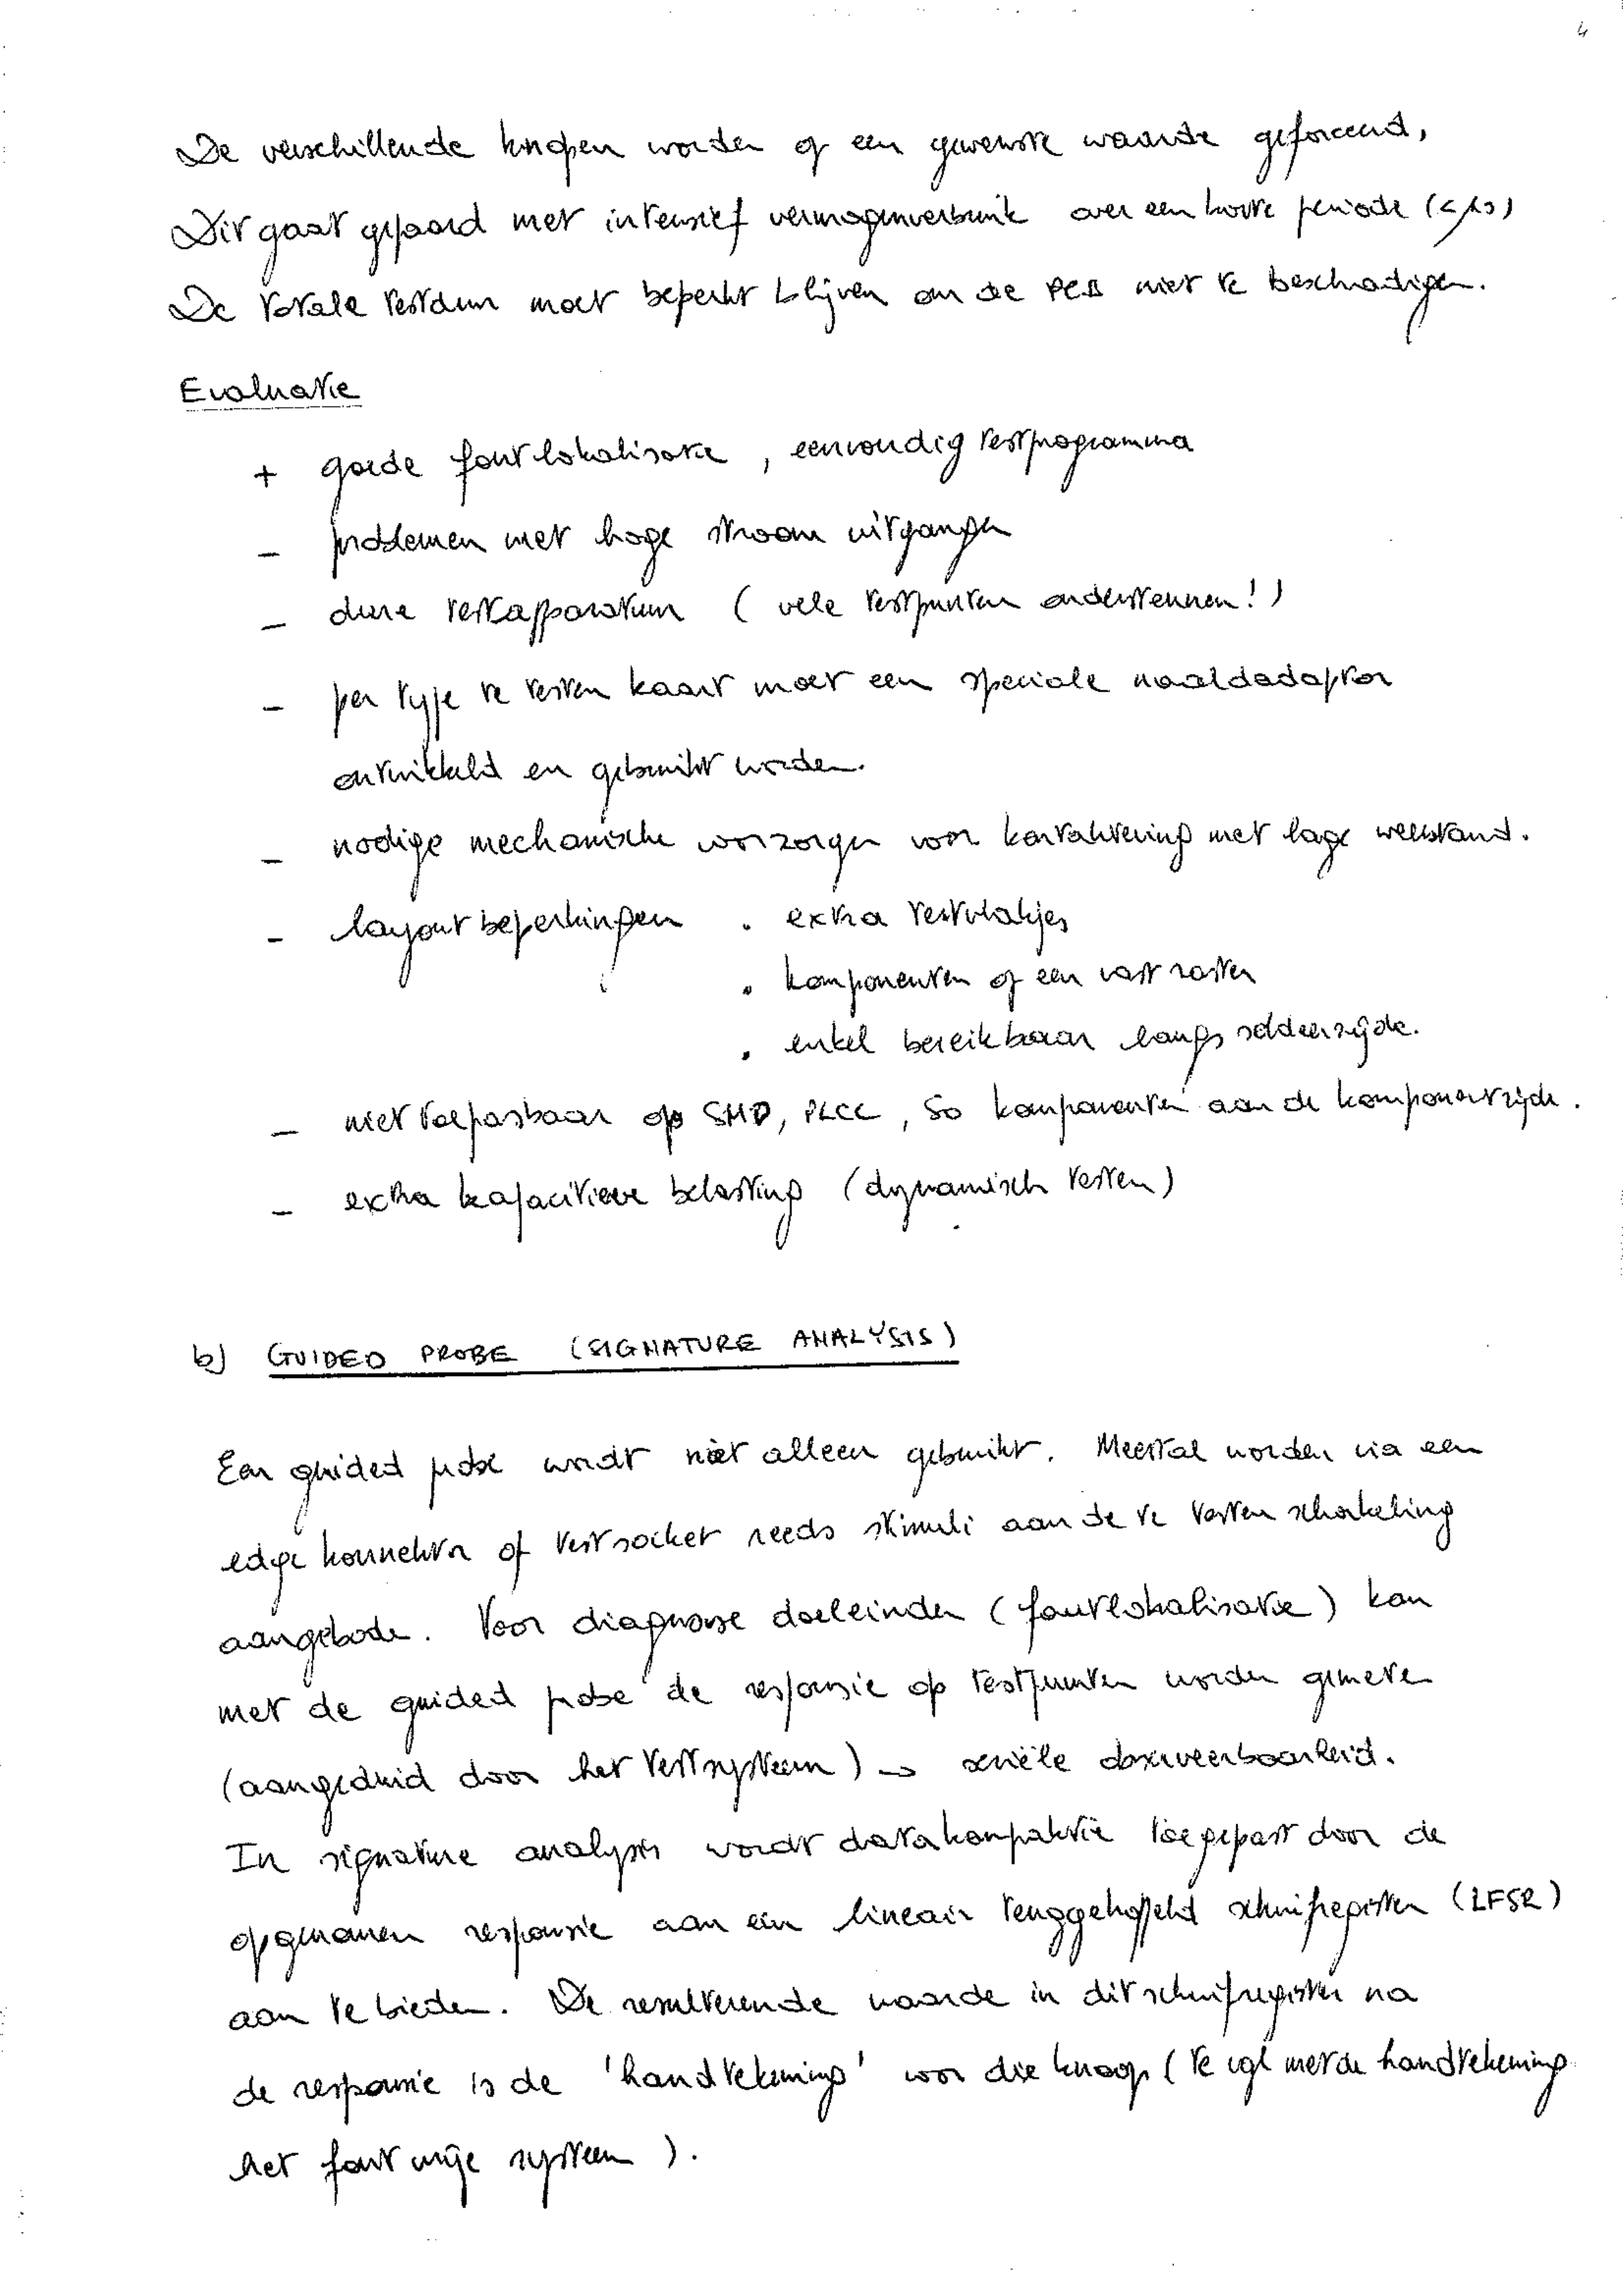 4
De verschillende knopen worden op een gewenste waarde geforceerd,
Dit gaat gepaard met intensief vermogenverbruik over een korte periode (<μs)
De totale testduur moet beperkt blijven om de PCB niet te beschadigen.
Evaluatie
+ goede foutlokalisatie, eenvoudig testprogramma
- problemen met hoge stroom uitgangen
- dure testapparatuur (vele testpunten ondersteunen!)
- per type te testen kaart moet een speciale naaldadaptor
ontwikkeld en gebruikt worden.
- nodige mechanische voorzorgen voor kontaktering met lage weerstand.
- layout beperkingen . extra testvlakjes
. komponenten op een vast raster
. enkel bereikbaar langs soldeerzijde.
- niet toepasbaar op SMD, PLCC, SO komponenten aan de komponentzijde.
- extra kapacitieve belasting (dynamisch testen)
b) GUIDED PROBE (SIGNATURE ANALYSIS)
Een guided probe wordt niet alleen gebruikt. Meestal worden via een
edge konnektor of testsocket reeds stimuli aan de te testen schakeling
aangeboden. Voor diagnose doeleinden (foutlokalisatie) kan
met de guided probe de responsie op testpunten worden gemeten
(aangeduid door het testsysteem) → seriële observeerbaarheid.
In signature analysis wordt datakompaktie toegepast door de
opgenomen responsie aan een lineair teruggekoppeld schuifregister (LFSR)
aan te bieden. De resulterende waarde in dit schuifregister na
de responsie is de 'handtekening' voor die knoop (te vgl met de handtekening
het fout vrije systeem).